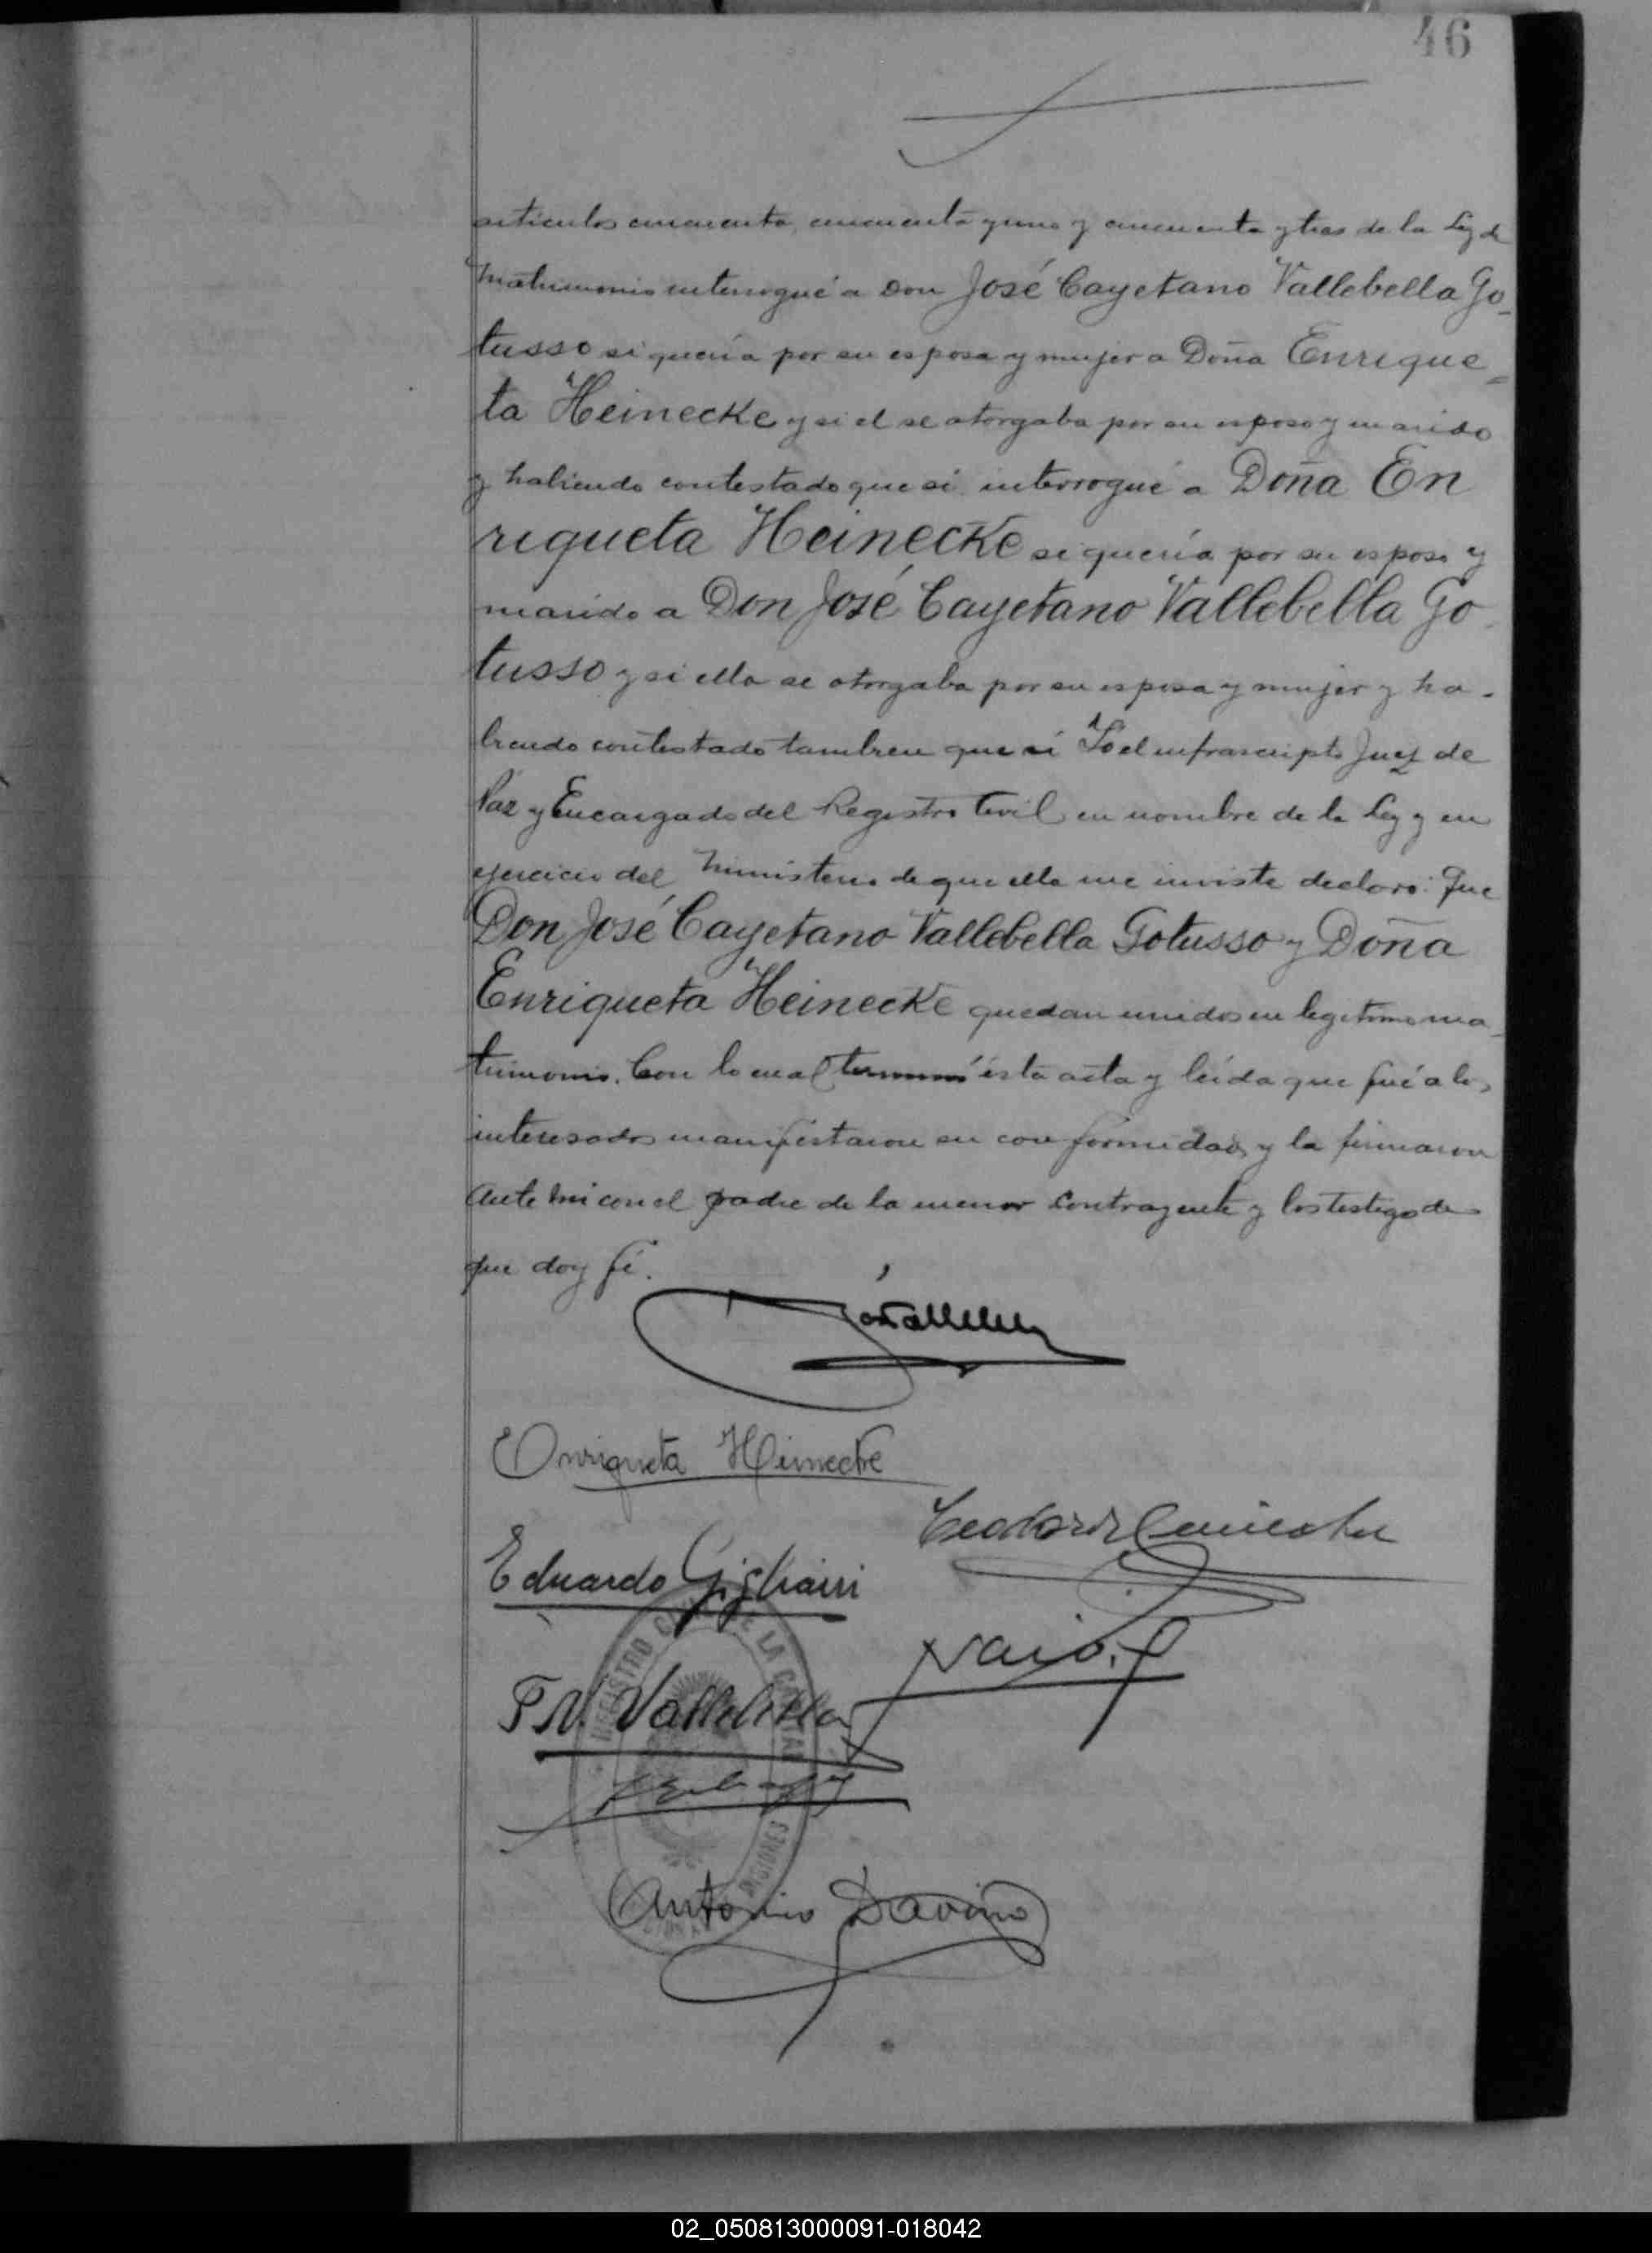 46
articulos cincuenta, cincuenta y uno y cincuenta y tres de la Ley de
Matrimonio interrogué a Don José Cayetano Vallebella Go_
tusso si queria por su esposa y mujer a Doña Enrique_
ta Heinecke y si el se otorgaba por su esposo y marido
y habiendo contestado que si interrogué a Doña En
riqueta Heinecke si queria por su esposo y
marido a Don José Cayetano Vallebella Go_
tusso y si ella se otorgaba por su esposa y mujer y ha_
biendo contestado tambien que si Yo el infrascripto Juez de
Paz y Encargado del Registro Civil en nombre de la Ley y en
ejercicio del Ministerio de que ella me inviste declaro: Que
Don José Cayetano Vallebella Gotusso y Doña
Enriqueta Heinecke quedan unidos en legitimo ma_
trimonio. Con lo cual terminó ésta acta y leída que fué a los
interesados manifestaron su conformidad y la firmaron
ante mi con el padre de la menor contrayente y los testigos de
que doy fé.
Enriqueta Heinecke
Eduardo
P. N. Vallebella
REGISTRO CIVIL DE LA CAPITAL
MISIONES
Antonio Davino
02_050813000091-018042